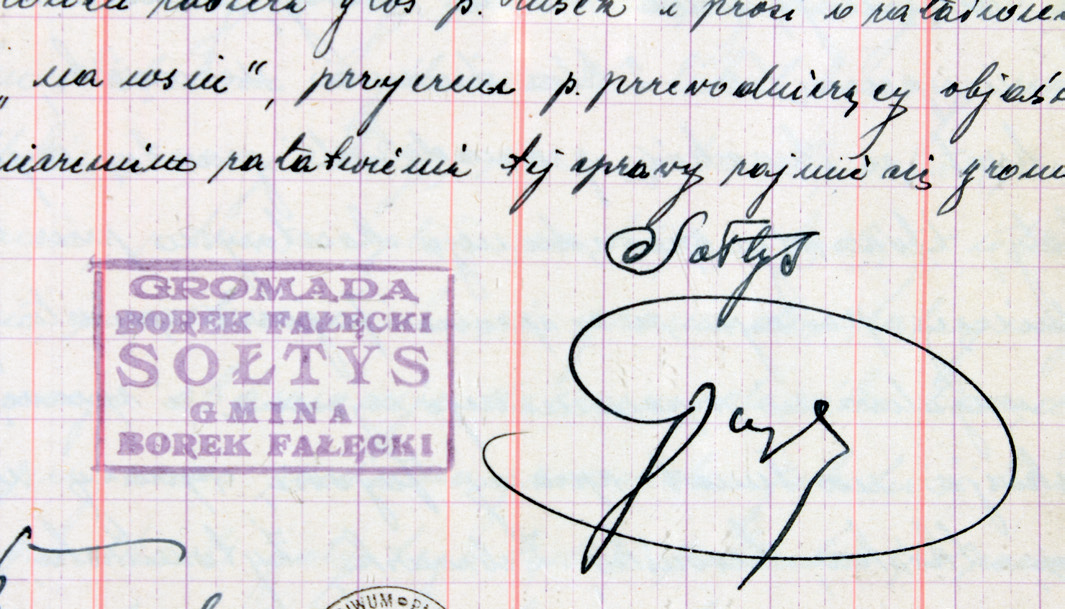 głos p. i prosi o załatwien
„ na wsiu“, przyczem p. przewodniczący objaś
załatwieniu tej sprawy zajmie się grom
Sołtys
GROMADA
BOREK FAŁĘCKI
SOŁTYS
GMINA
BOREK FAŁĘCKI
IWUM